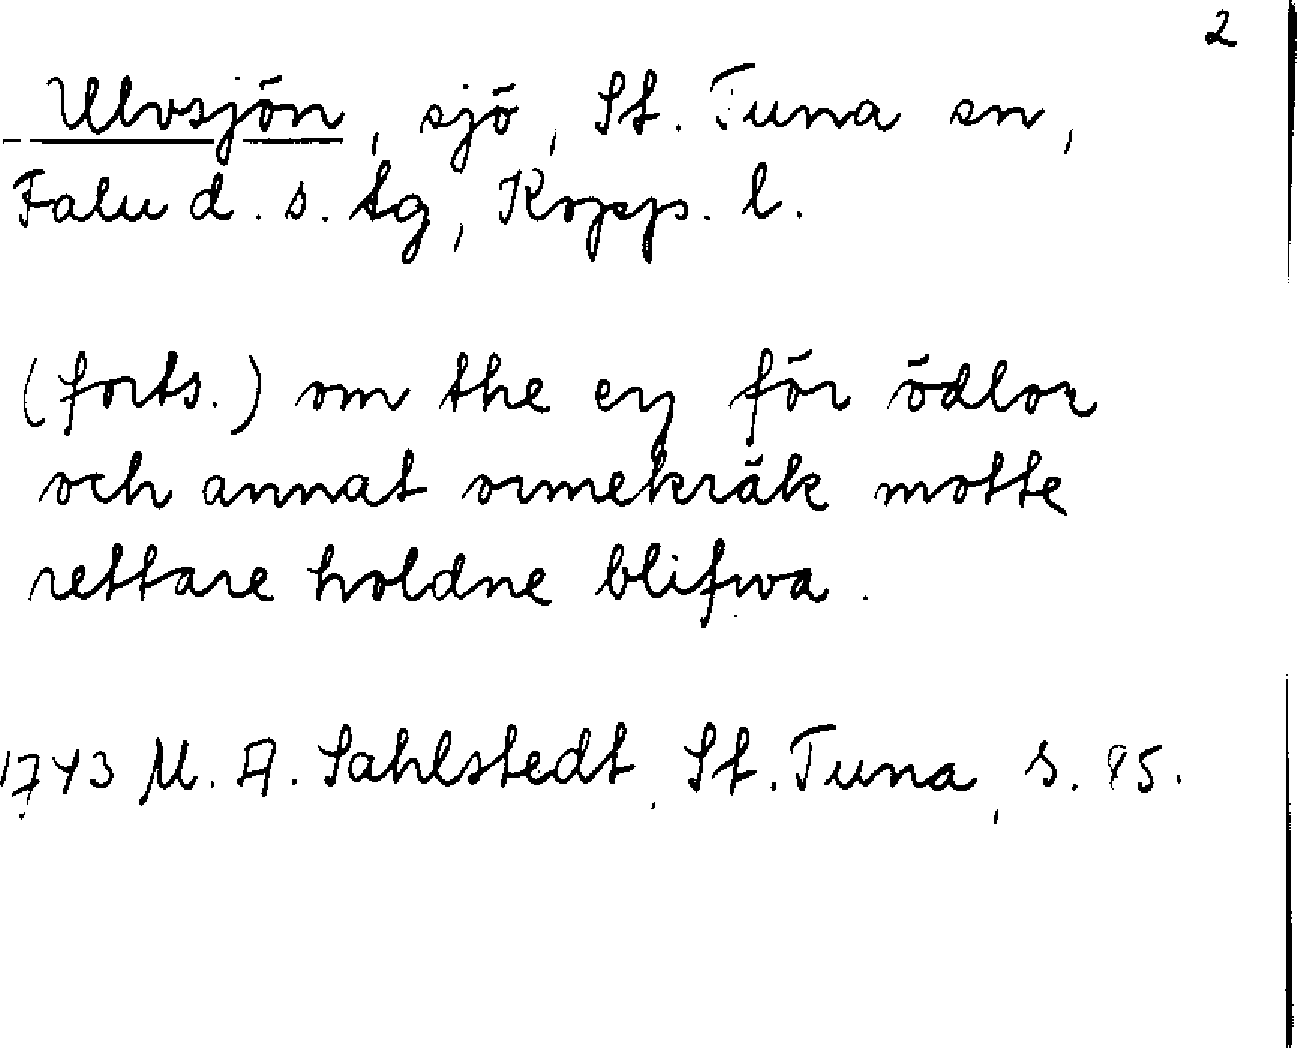 2
Ulvsjön, sjö, St. Tuna sn,
Falu d. s. tg, Kopp. l.
(forts.) om the ey för ödlor
och annat ormekräk motte
rettare holdne blifwa.
1743 M. A. Sahlstedt, St. Tuna, s.